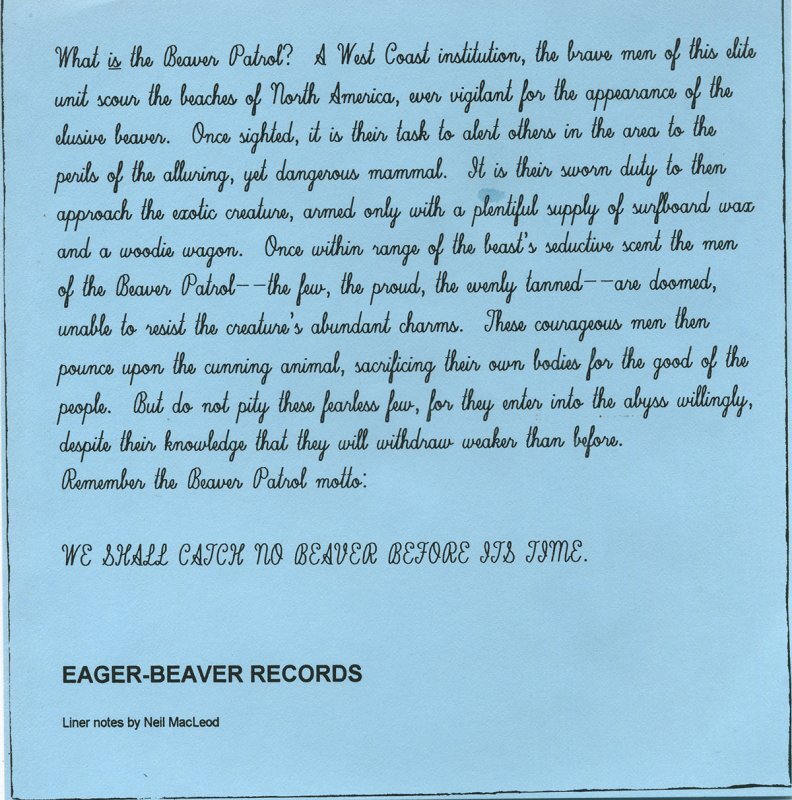 What is the Beaver Patrol? A West Coast institution, the brave men of this elite
unit scour the beaches of North America, ever vigilant for the appearance of the
elusive beaver. Once sighted, it is their task to alert others in the area to the
perils of the alluring, yet dangerous mammal. It is their sworn duty to then
approach the exotic creature, armed only with a plentiful supply of surfboard wax
and a woodie wagon. Once within range of the beast's seductive scent the men
of the Beaver Patrol--the few, the proud, the evenly tanned--are doomed,
unable to resist the creature's abundant charms. These courageous men then
pounce upon the cunning animal, sacrificing their own bodies for the good of the
people. But do not pity these fearless few, for they enter into the abyss willingly,
despite their knowledge that they will withdraw weaker than before.
Remember the Beaver Patrol motto:
WE SHALL CATCH NO BEAVER BEFORE ITS TIME.
EAGER-BEAVER RECORDS
Liner notes by Neil MacLeod